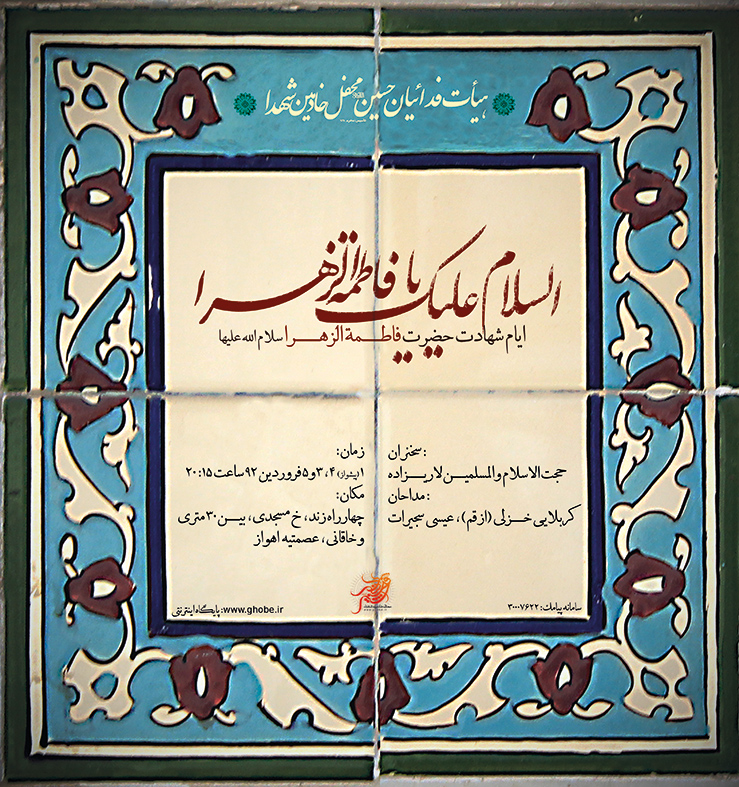 هیأت فدائیان حسین محفل خادمین شهدا
السلام علیک یا فاطمة الزهرا
ایام شهادت حضرت فاطمة الزهرا سلام الله علیها
سخنران:
حجت الاسلام والمسلمین لاریزاده
مداحان:
کربلایی خزلی (از قم)، عیسی سجیرات
زمان:
۱(پیشواز) ۳،۴ و ۵ فروردین ۹۲ ساعت ۲۰:۱۵
مکان:
چهارراه زند، خ مسجدی، بین ۳۰ متری
و خاقانی، عصمتیه اهواز
سامانه پیامک: ۳۰۰۰۷۶۲۲
پایگاه اینترنتی: www.ghobe.ir